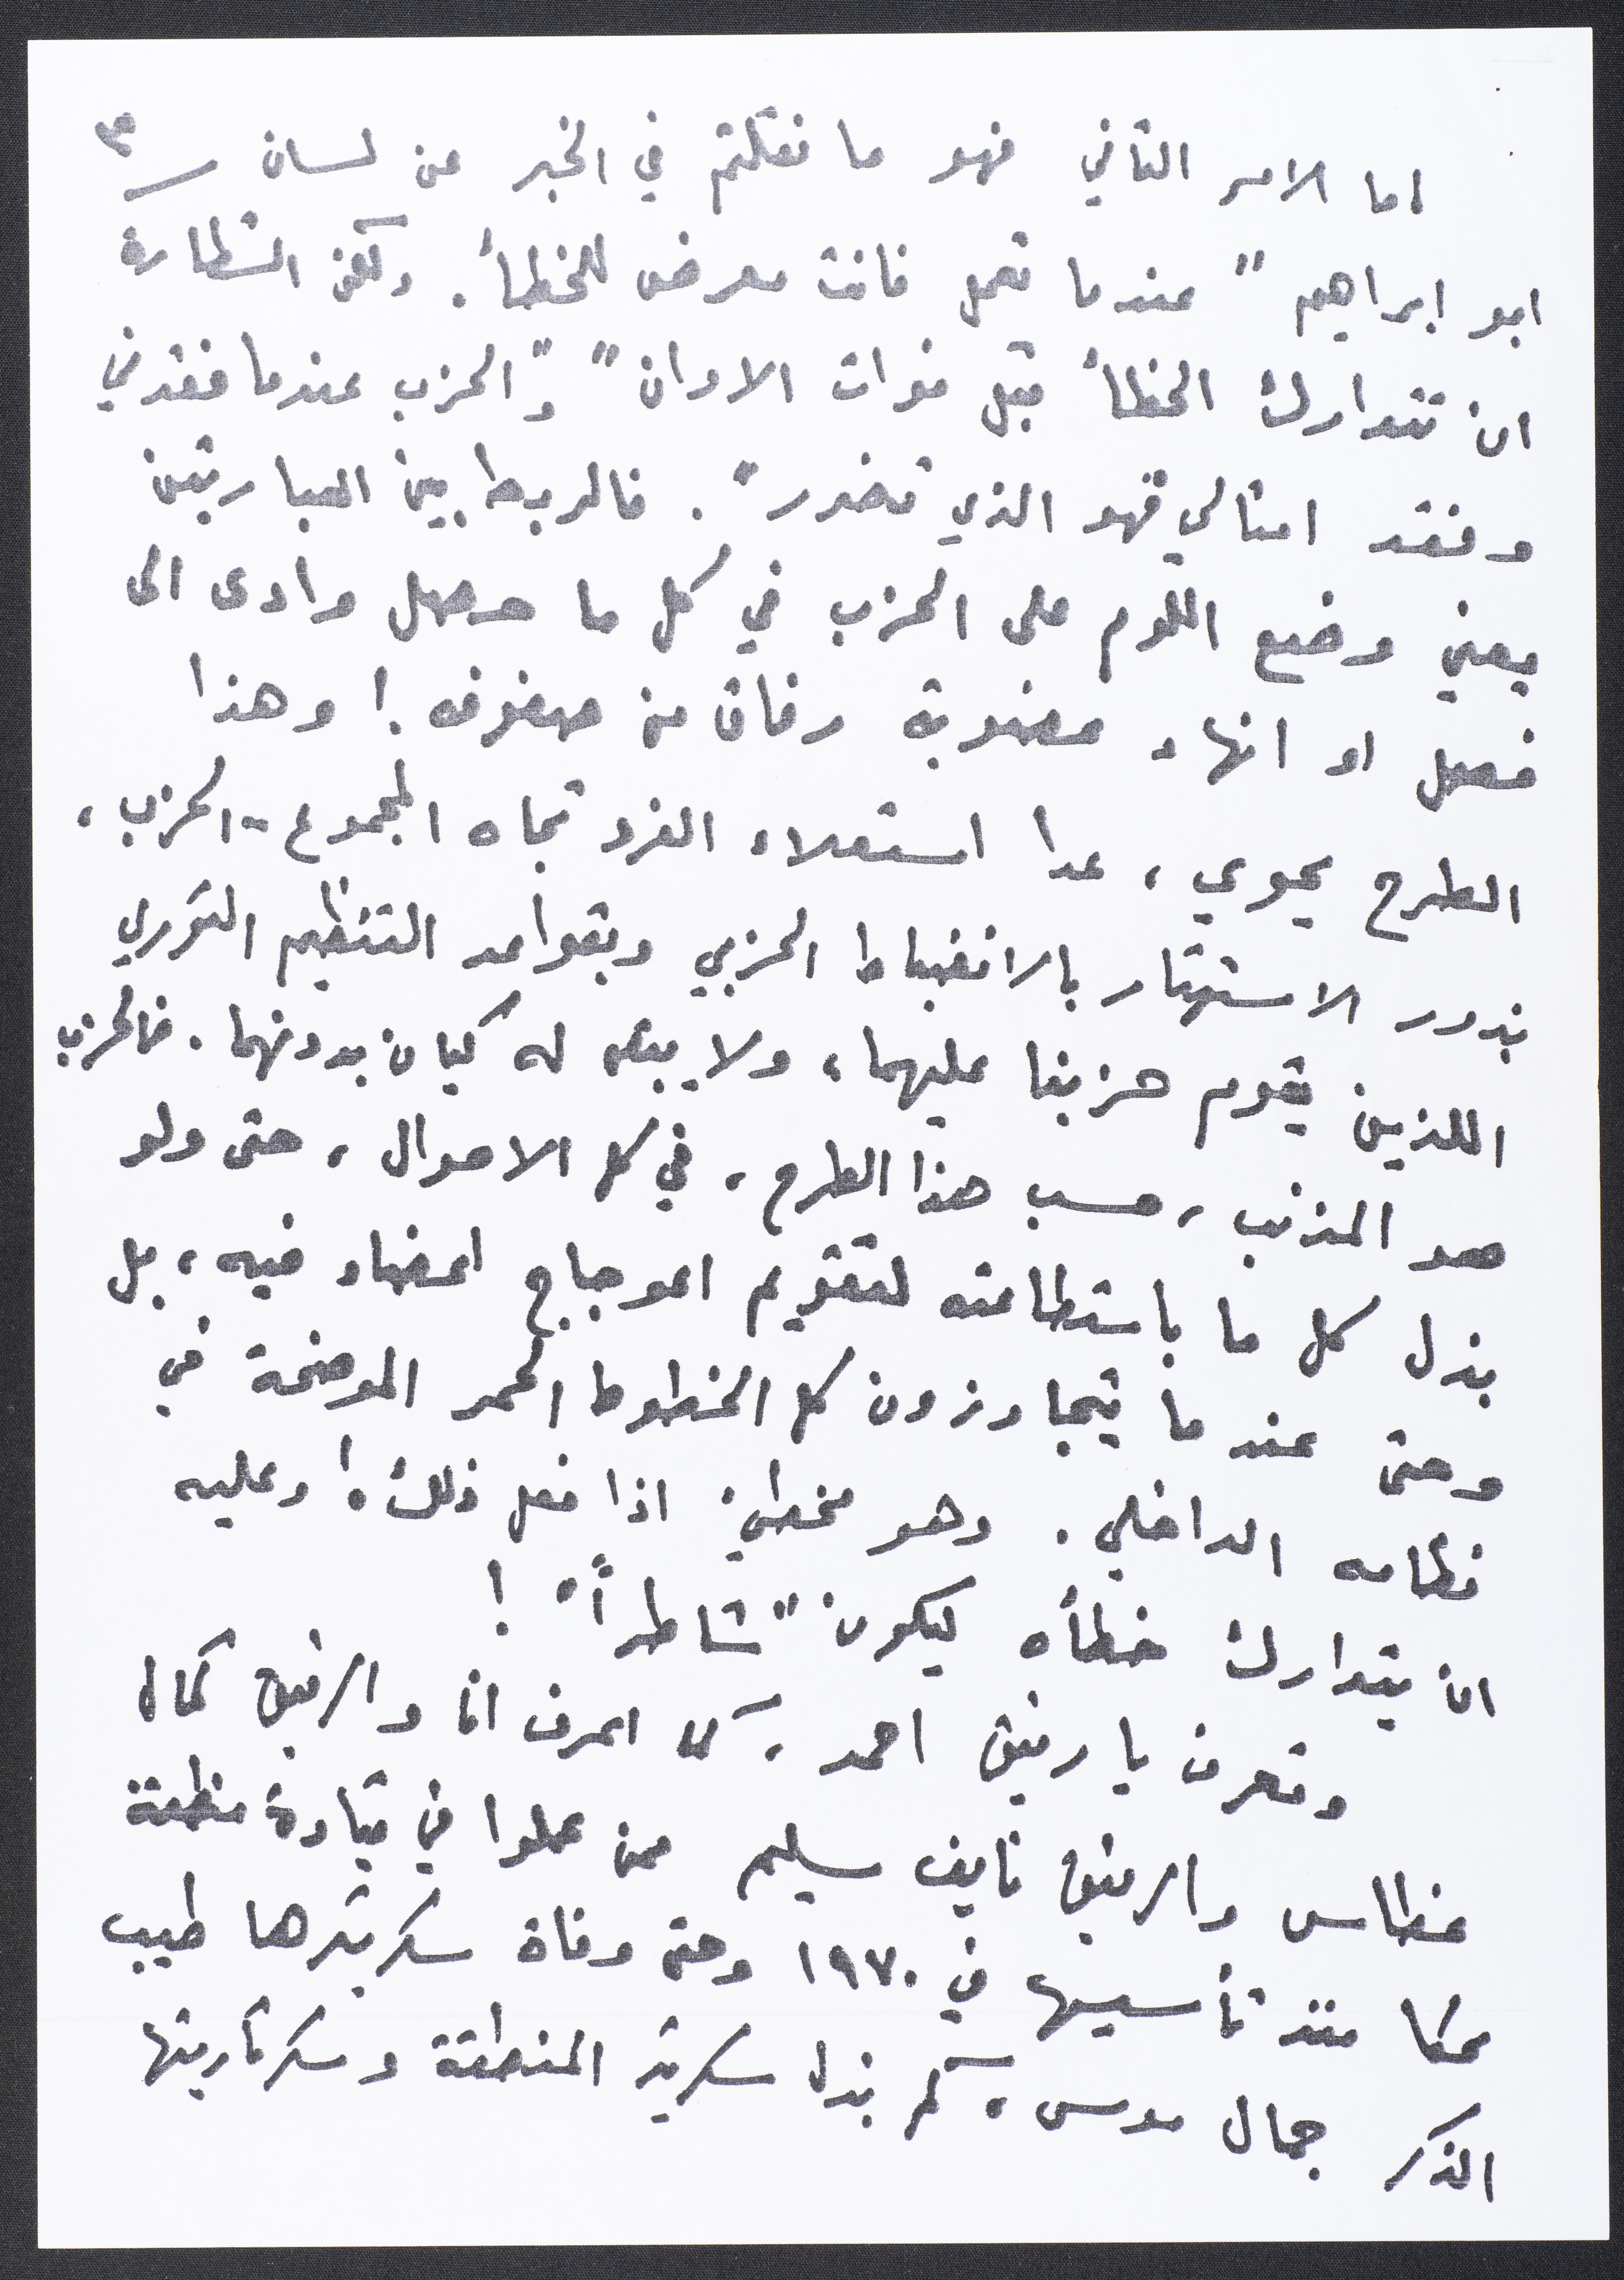 ٣
اما الامر الثاني فهو ما نقلتم في الخبر عن لسان
ابو ابراهيم " عندما تعمل فانت معرض للخطأ . ولكن الشطارة
ان تتدارك الخطأ قبل فوات الاوان " و"الحزب عندما فقدني
وفقد امثالي فهو الذي تضرر " . فالربط بين العبارتين
يعني وضع اللوم على الحزب في كل ما حصل وادى الى
فصل او انهاء عضوية رفاق من صفوفه ! وهذا
الطرح يحوي ، عدا استعلاء الفرد تجاه المجموع - الحزب ،
بذور الاستهتار بالانضباط الحزبي وبقواعد التنظيم الثوري
اللذين يقوم حزبنا عليهما ، ولا يبقى له كيان بدونهما . فالحزب
هو المذنب ، حسب هذا الطرح ، في كل الاحوال ، حتى ولو
بذل كل ما باستطاعته لتقويم اعوجاج اعضاء فيه ، بل
وحتى عندما يتجاوزون كل الخطوط الحمر الموضحة في
نظامه الداخلي . وهو مخطئ اذا فعل ذلك ! وعليه
ان يتدارك خطأه ليكون " شاطراً " !
وتعرف يا رفيق احمد ، كما اعرف انا والرفيق كمال
غطاس والرفيق نايف سليم ممن عملوا في قيادة منطقة
عكا منذ تأسيسها في ١٩٧٠ وحتى وفاة سكرتيرها طيب
الذكر جمال موسى ، كم بذل سكرتير المنطقة وسكرتاريتها